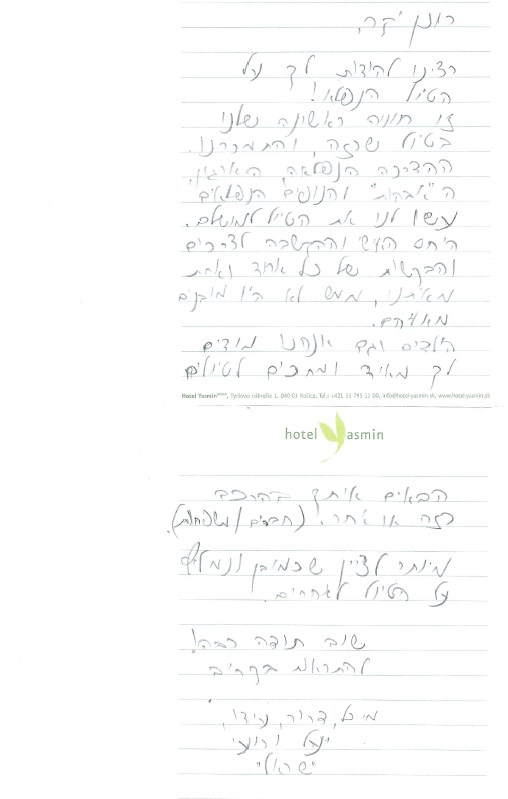 רונן יקר,
רצינו להודות לך על
הטיול הנפלא!
זו חוויה ראשונה שלנו
בטיול שכזה, והתמכרנו.
ההדרכה הנפלאה, הארגון,
ה"אבקות" והנופים הנפלאים
עשו לנו את הטיול למושלם.
היחס האישי וההקשבה לצרכים
והבקשות של כל אחד ואחת
מאיתנו, ממש לא היו מובנים
מאליהם.
הילדים וגם אנחנו מודים
לך מאיד ומחכים לטיולים
Hotel Yasmin****, Tyršovo nábrežie 1, 040 01 Košice, Tel.: +421 55 795 11 00, info@hotel-yasmin.sk, www.hotel-yasmin.sk
hotel Yasmin
הבאים איתך בהרכב
כזה או אחר. (חברים/משפחות).
מיותר לציין שכמובן ונמליץ
על הטיול לאחרים.
שוב תודה רבה!
להתראות בקרוב
מיכל, דרור, עידו,
יעל ורועי
ישראלי